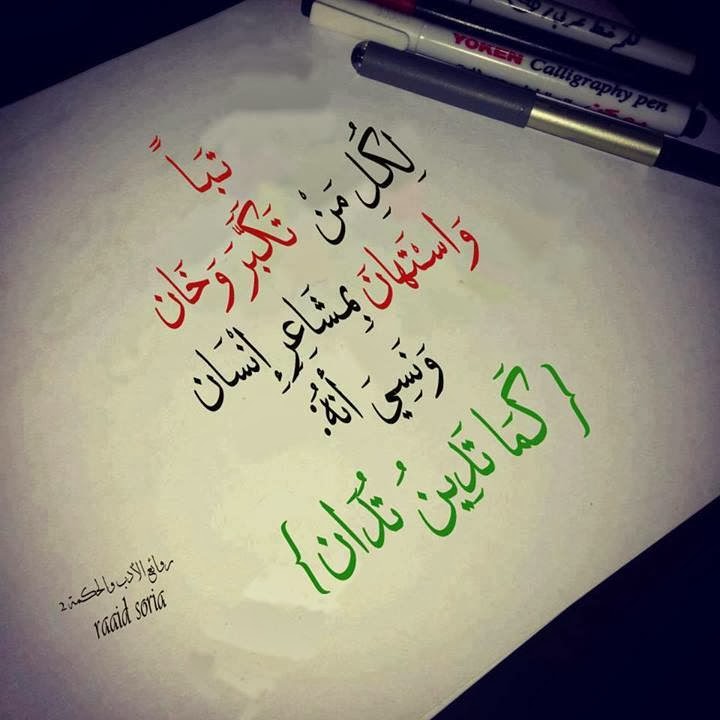 تَبّاً
لِكُلِ مَنْ تَكَبَّرَ وَخَان
وَاسْتَهانَ بِمشَاعِرِ إنْسَان
وَنَسِيَ أنهُ:
{كَمَا تَدِينُ تُدَان}
روائع الأدب والحكمة 2
raaid soria
YOKEN Calligraphy pen